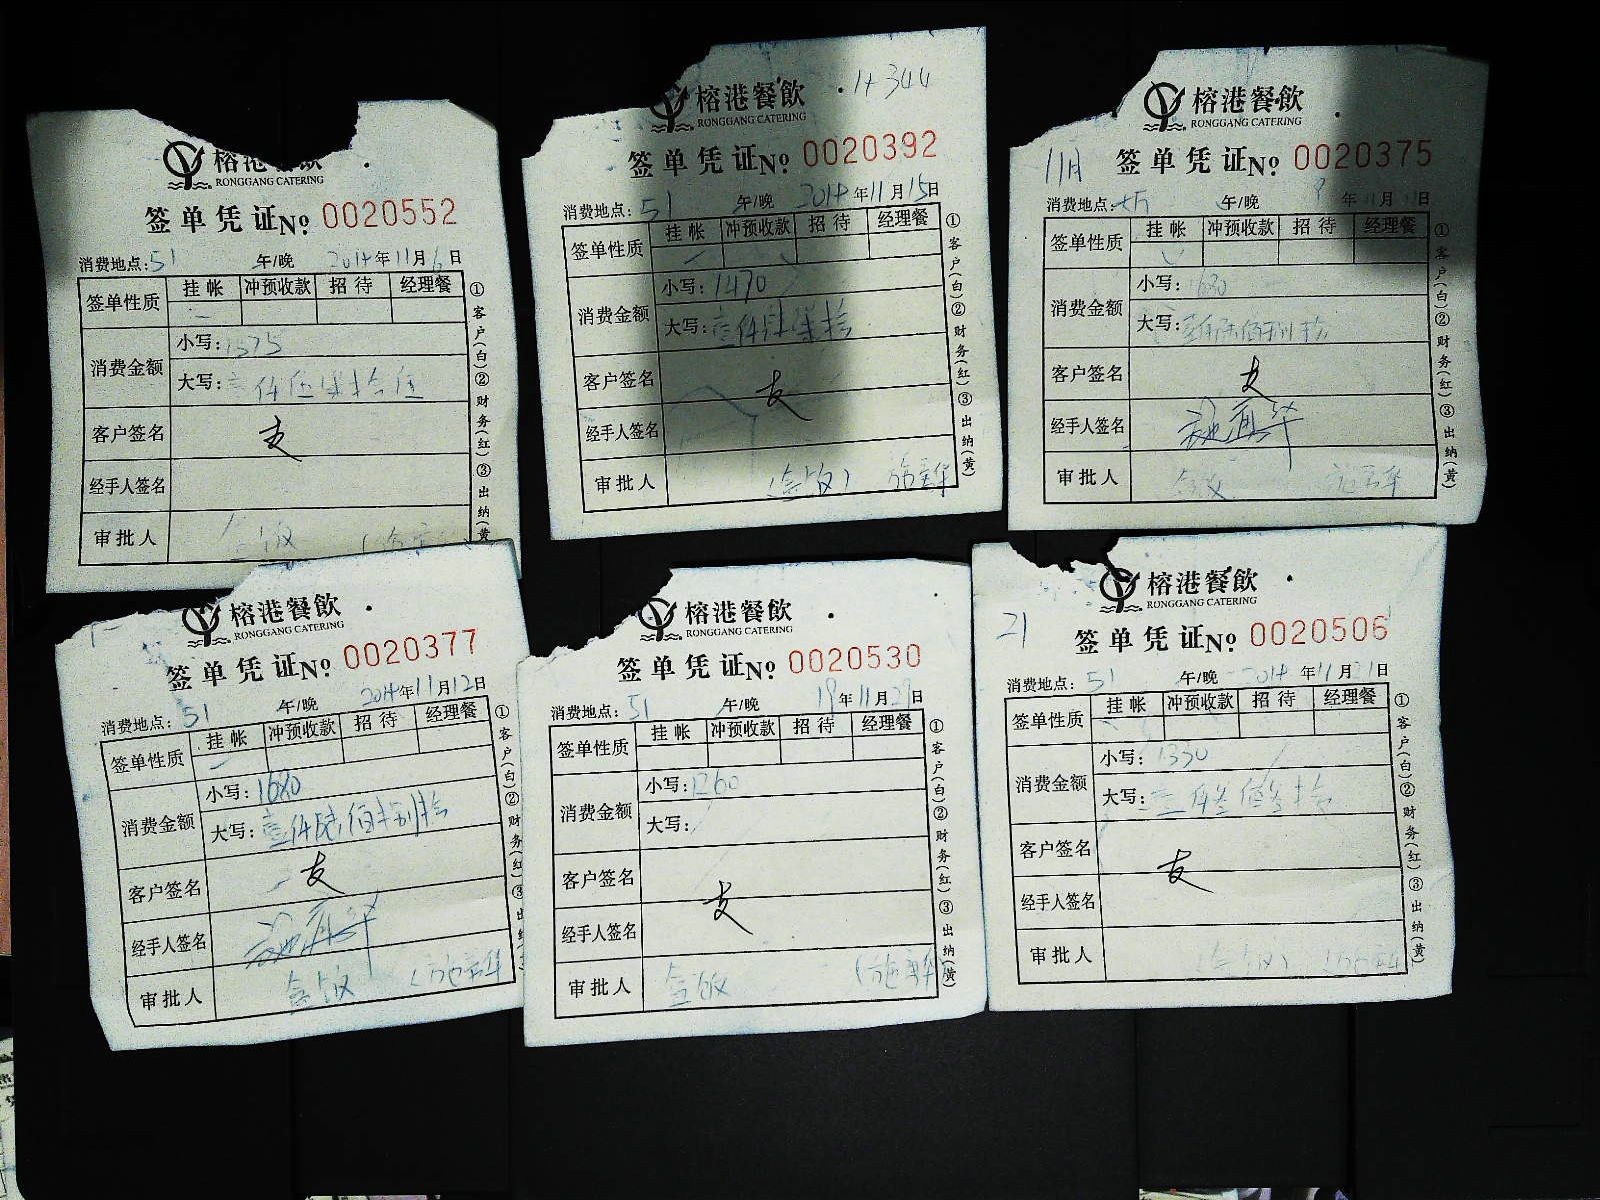 榕港餐飲
RONGGANG CATERING
签单凭证No. 0020552
消费地点:51 午/晚 2014年11月6日
签单性质 挂帐 冲预收款 招待 经理餐
消费金额 小写:1575
大写:壹仟伍佰柒拾伍
客户签名 支
经手人签名
审批人
①客户(白)②财务(红)③出纳(黄
榕港餐飲 1+344
RONGGANG CATERING
签单凭证No. 0020392
消费地点:51 午/晚 2014年11月15日
签单性质 挂帐 冲预收款 招待 经理餐
消费金额 小写:1470
大写:壹仟肆佰柒拾
客户签名 支
经手人签名
审批人
①客户(白)②财务(红)③出纳(黄)
榕港餐飲
RONGGANG CATERING
11月 签单凭证No. 0020375
消费地点: 午/晚 年11月 日
签单性质 挂帐 冲预收款 招待 经理餐
消费金额 小写:1680
大写:壹仟陆佰捌拾
客户签名 支
经手人签名
审批人
①客户(白)②财务(红)③出纳(黄)
榕港餐飲
RONGGANG CATERING
签单凭证No. 0020377
消费地点:51 午/晚 2014年11月12日
签单性质 挂帐 冲预收款 招待 经理餐
消费金额 小写:1680
大写:壹仟陆佰捌拾
客户签名 支
经手人签名
审批人
①客户(白)②财务(红)③出
榕港餐飲
RONGGANG CATERING
签单凭证No. 0020530
消费地点:51 午/晚 19年11月29日
签单性质 挂帐 冲预收款 招待 经理餐
消费金额 小写:1260
大写:
客户签名
经手人签名 支
审批人
①客户(白)②财务(红)③出纳(黄)
榕港餐飲
RONGGANG CATERING
21 签单凭证No. 0020506
消费地点:51 午/晚 2014年11月21日
签单性质 挂帐 冲预收款 招待 经理餐
消费金额 小写:1330
大写:壹仟叁佰叁拾
客户签名 支
经手人签名
审批人
①客户(白)②财务(红)③出纳(黄)